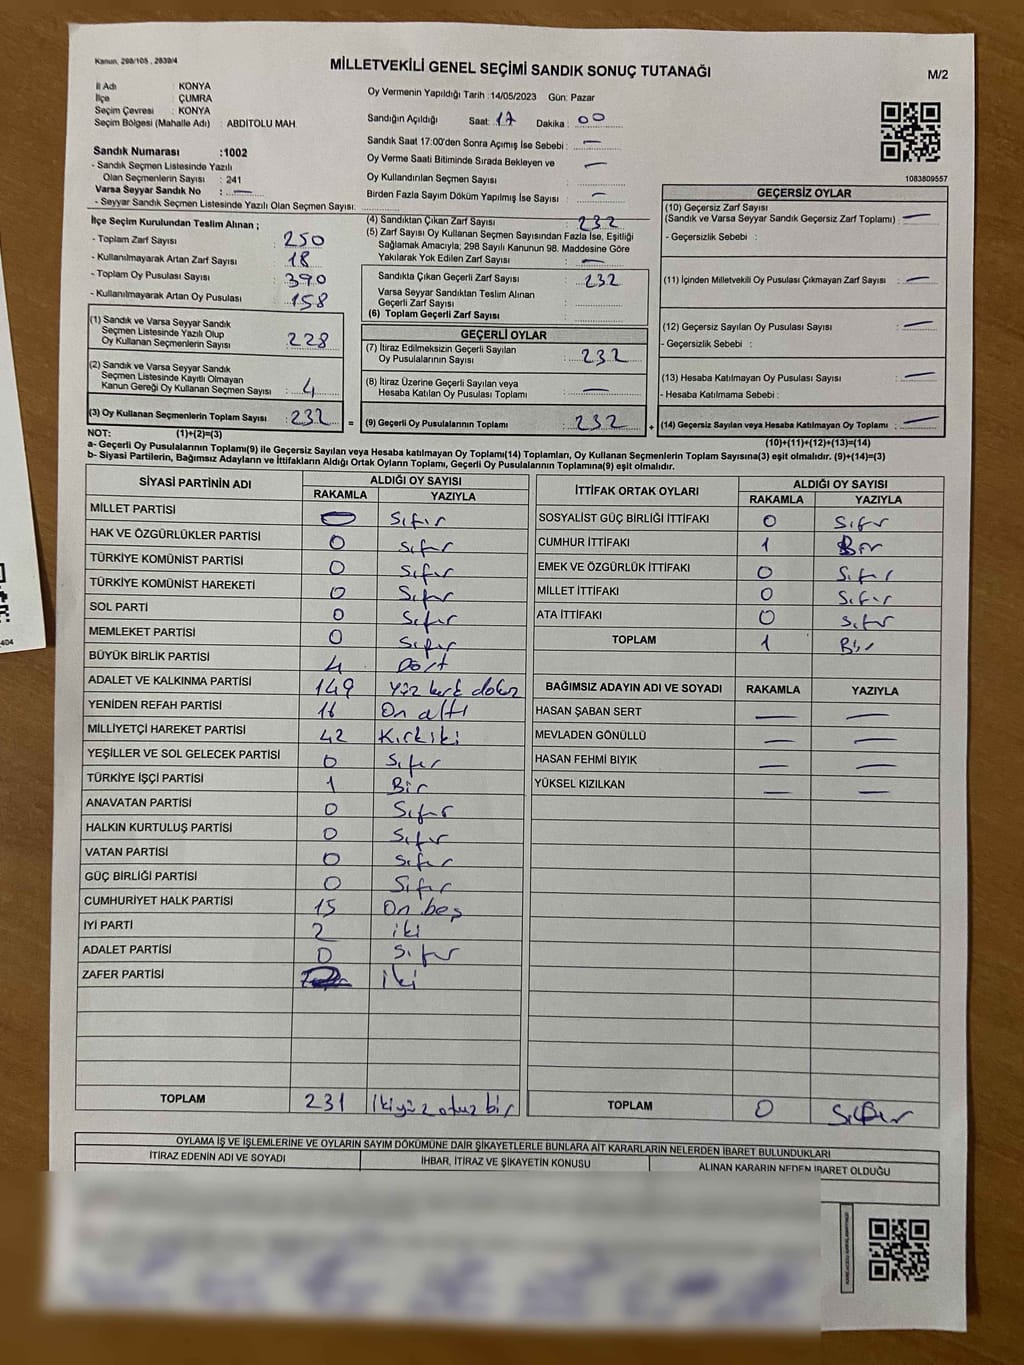 Kanun, 298/105 , 2839/4
MİLLETVEKİLİ GENEL SEÇİMİ SANDIK SONUÇ TUTANAĞI
M/2
İl Adı : KONYA
İlçe : ÇUMRA
Seçim Çevresi : KONYA
Seçim Bölgesi (Mahalle Adı) : ABDİTOLU MAH.
Oy Vermenin Yapıldığı Tarih :14/05/2023 Gün: Pazar
Sandığın Açıldığı Saat: 17 Dakika : 00
Sandık Saat 17:00'den Sonra Açımış İse Sebebi : —
Oy Verme Saati Bitiminde Sırada Bekleyen ve —
Oy Kullandırılan Seçmen Sayısı :
Birden Fazla Sayım Döküm Yapılmış İse Sayısı : —
1083809557
Sandık Numarası :1002
- Sandık Seçmen Listesinde Yazılı
Olan Seçmenlerin Sayısı : 241
Varsa Seyyar Sandık No : —
- Seyyar Sandık Seçmen Listesinde Yazılı Olan Seçmen Sayısı:
İlçe Seçim Kurulundan Teslim Alınan ;
- Toplam Zarf Sayısı : 250
- Kullanılmayarak Artan Zarf Sayısı : 18
- Toplam Oy Pusulası Sayısı : 390
- Kullanılmayarak Artan Oy Pusulası : 158
(1) Sandık ve Varsa Seyyar Sandık
Seçmen Listesinde Yazılı Olup
Oy Kullanan Seçmenlerin Sayısı : 228
(2) Sandık ve Varsa Seyyar Sandık
Seçmen Listesinde Kayıtlı Olmayan
Kanun Gereği Oy Kullanan Seçmen Sayısı : 4
(3) Oy Kullanan Seçmenlerin Toplam Sayısı : 232 =
(4) Sandıktan Çıkan Zarf Sayısı : 232
(5) Zarf Sayısı Oy Kullanan Seçmen Sayısından Fazla İse, Eşitliği
Sağlamak Amacıyla; 298 Sayılı Kanunun 98. Maddesine Göre
Yakılarak Yok Edilen Zarf Sayısı : —
Sandıkta Çıkan Geçerli Zarf Sayısı : 232
Varsa Seyyar Sandıktan Teslim Alınan
Geçerli Zarf Sayısı :
(6) Toplam Geçerli Zarf Sayısı :
GEÇERLİ OYLAR
(7) İtiraz Edilmeksizin Geçerli Sayılan
Oy Pusulalarının Sayısı : 232
(8) İtiraz Üzerine Geçerli Sayılan veya
Hesaba Katılan Oy Pusulaları Toplamı : —
(9) Geçerli Oy Pusulalarının Toplamı : 232 +
GEÇERSİZ OYLAR
(10) Geçersiz Zarf Sayısı
(Sandık ve Varsa Seyyar Sandık Geçersiz Zarf Toplamı) : —
- Geçersizlik Sebebi :
(11) İçinden Milletvekili Oy Pusulası Çıkmayan Zarf Sayısı : —
(12) Geçersiz Sayılan Oy Pusulası Sayısı : —
- Geçersizlik Sebebi :
(13) Hesaba Katılmayan Oy Pusulası Sayısı : —
- Hesaba Katılmama Sebebi :
(14) Geçersiz Sayılan veya Hesaba Katılmayan Oy Toplamı : —
NOT: (1)+(2)=(3) (10)+(11)+(12)+(13)=(14)
a- Geçerli Oy Pusulalarının Toplamı(9) ile Geçersiz Sayılan veya Hesaba katılmayan Oy Toplamı(14) Toplamları, Oy Kullanan Seçmenlerin Toplam Sayısına(3) eşit olmalıdır. (9)+(14)=(3)
b- Siyasi Partilerin, Bağımsız Adayların ve İttifakların Aldığı Ortak Oyların Toplamı, Geçerli Oy Pusulalarının Toplamına(9) eşit olmalıdır.
SİYASİ PARTİNİN ADI ALDIĞI OY SAYISI
RAKAMLA YAZIYLA
MİLLET PARTİSİ 0 Sıfır
HAK VE ÖZGÜRLÜKLER PARTİSİ 0 Sıfır
TÜRKİYE KOMÜNİST PARTİSİ 0 Sıfır
TÜRKİYE KOMÜNİST HAREKETİ 0 Sıfır
SOL PARTİ 0 Sıfır
MEMLEKET PARTİSİ 0 Sıfır
BÜYÜK BİRLİK PARTİSİ 4 Dört
ADALET VE KALKINMA PARTİSİ 149 Yüz kırk dokuz
YENİDEN REFAH PARTİSİ 16 On altı
MİLLİYETÇİ HAREKET PARTİSİ 42 Kırk iki
YEŞİLLER VE SOL GELECEK PARTİSİ 0 Sıfır
TÜRKİYE İŞÇİ PARTİSİ 1 Bir
ANAVATAN PARTİSİ 0 Sıfır
HALKIN KURTULUŞ PARTİSİ 0 Sıfır
VATAN PARTİSİ 0 Sıfır
GÜÇ BİRLİĞİ PARTİSİ 0 Sıfır
CUMHURİYET HALK PARTİSİ 15 On beş
İYİ PARTİ 2 iki
ADALET PARTİSİ 0 Sıfır
ZAFER PARTİSİ iki
TOPLAM 231 İkiyüz otuz bir
İTTİFAK ORTAK OYLARI ALDIĞI OY SAYISI
RAKAMLA YAZIYLA
SOSYALİST GÜÇ BİRLİĞİ İTTİFAKI 0 Sıfır
CUMHUR İTTİFAKI 1 Bir
EMEK VE ÖZGÜRLÜK İTTİFAKI 0 Sıfır
MİLLET İTTİFAKI 0 Sıfır
ATA İTTİFAKI 0 Sıfır
TOPLAM 1 Bir
BAĞIMSIZ ADAYIN ADI VE SOYADI RAKAMLA YAZIYLA
HASAN ŞABAN SERT — —
MEVLADEN GÖNÜLLÜ — —
HASAN FEHMİ BIYIK — —
YÜKSEL KIZILKAN — —
TOPLAM 0 Sıfır
OYLAMA İŞ VE İŞLEMLERİNE VE OYLARIN SAYIM DÖKÜMÜNE DAİR ŞİKAYETLERLE BUNLARA AİT KARARLARIN NELERDEN İBARET BULUNDUKLARI
İTİRAZ EDENİN ADI VE SOYADI İHBAR, İTİRAZ VE ŞİKAYETİN KONUSU ALINAN KARARIN NEDEN İBARET OLDUĞU